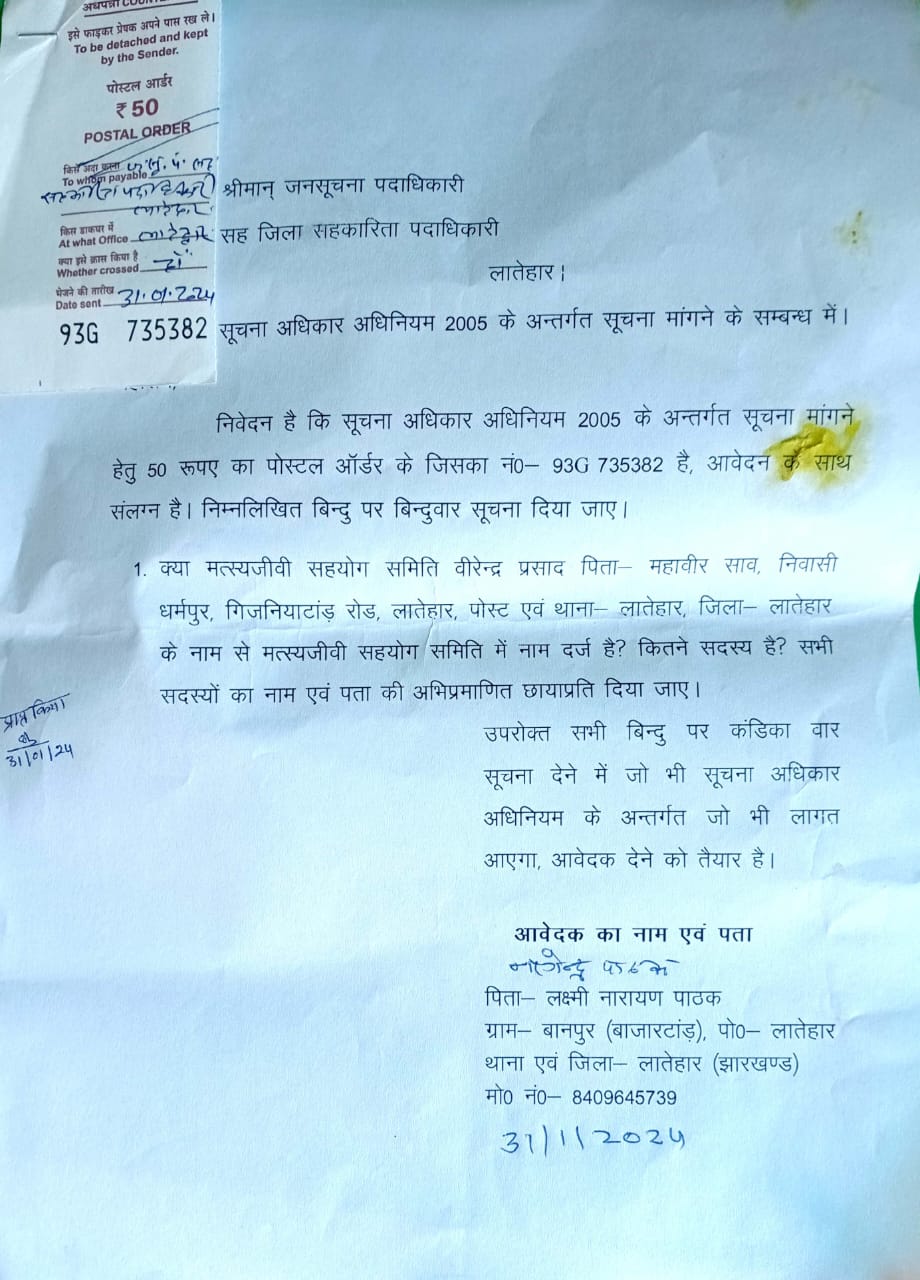 अधपन्ना COUNTE
इसे फाड़कर प्रेषक अपने पास रख ले।
To be detached and kept
by the Sender.
पोस्टल आर्डर
₹ 50
POSTAL ORDER
किसे अदा करना
To whom payable
लातेहार
किस डाकघर में
At what Office लातेहार
क्या इसे क्रास किया है
Whether crossed हाँ
भेजने की तारीख
Date sent 31.01.2024
93G 735382
श्रीमान् जनसूचना पदाधिकारी
सह जिला सहकारिता पदाधिकारी
लातेहार।
सूचना अधिकार अधिनियम 2005 के अन्तर्गत सूचना मांगने के सम्बन्ध में।
निवेदन है कि सूचना अधिकार अधिनियम 2005 के अन्तर्गत सूचना मांगने
हेतु 50 रूपए का पोस्टल ऑर्डर के जिसका नं0– 93G 735382 है, आवेदन के साथ
संलग्न है। निम्नलिखित बिन्दु पर बिन्दुवार सूचना दिया जाए।
1. क्या मत्स्यजीवी सहयोग समिति वीरेन्द्र प्रसाद पिता– महावीर साव, निवासी
धर्मपुर, गिजनियाटांड़ रोड, लातेहार, पोस्ट एवं थाना– लातेहार, जिला– लातेहार
के नाम से मत्स्यजीवी सहयोग समिति में नाम दर्ज है? कितने सदस्य है? सभी
सदस्यों का नाम एवं पता की अभिप्रमाणित छायाप्रति दिया जाए।
प्राप्त किया
31/01/24
उपरोक्त सभी बिन्दु पर कंडिका वार
सूचना देने में जो भी सूचना अधिकार
अधिनियम के अन्तर्गत जो भी लागत
आएगा, आवेदक देने को तैयार है।
आवेदक का नाम एवं पता
नागेन्द्र पाठक
पिता– लक्ष्मी नारायण पाठक
ग्राम– बानपुर (बाजारटांड़), पो0– लातेहार
थाना एवं जिला– लातेहार (झारखण्ड)
मो0 नं0– 8409645739
31/1/2024